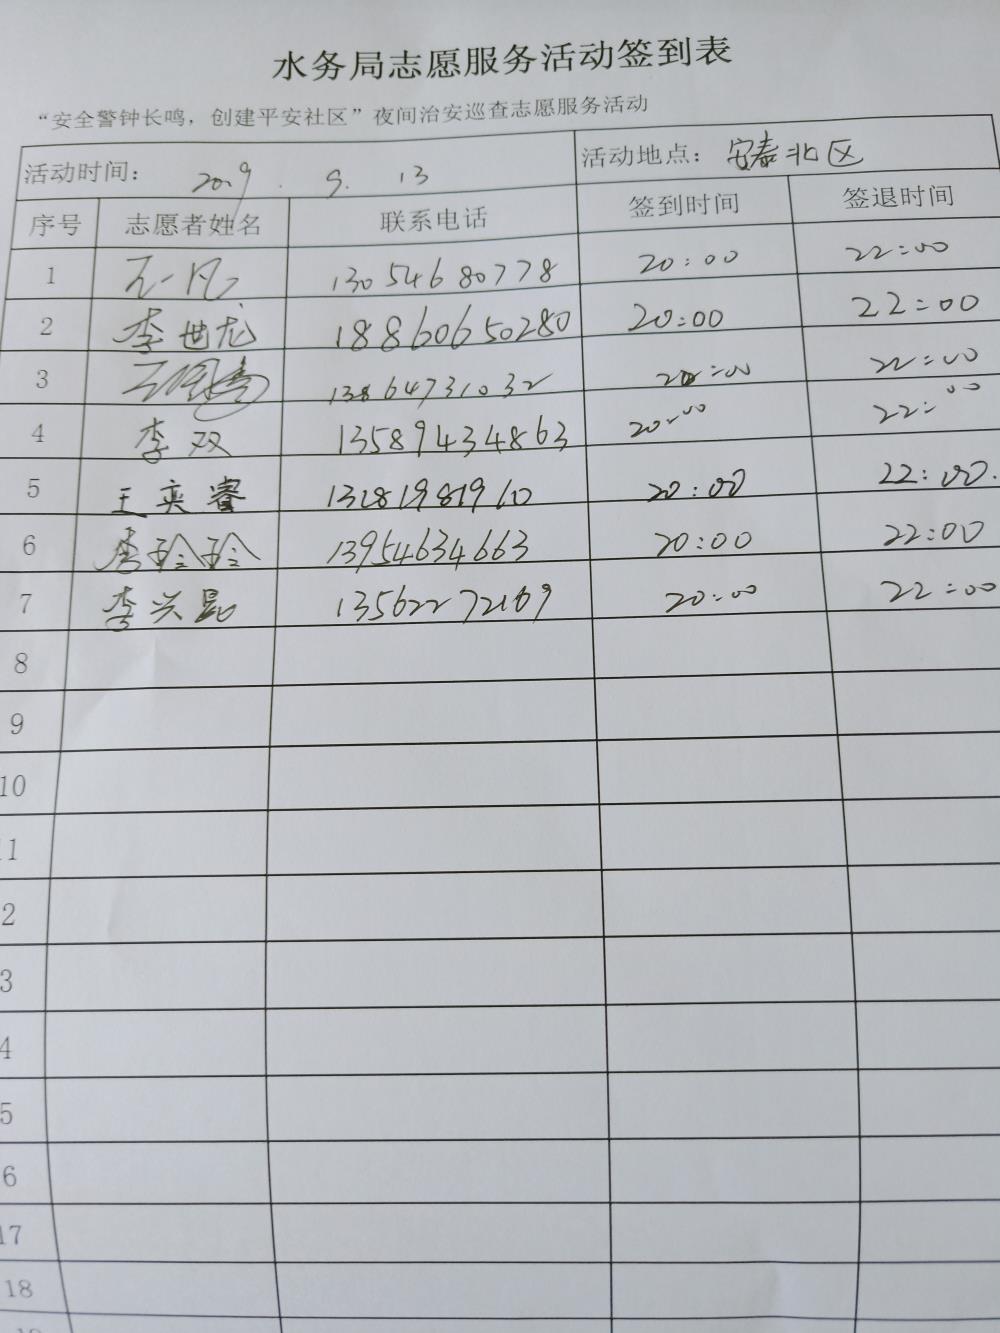 水务局志愿服务活动签到表
“安全警钟长鸣，创建平安社区”夜间治安巡查志愿服务活动
活动时间： 2019.9.13 活动地点：安泰北区
序号 志愿者姓名 联系电话 签到时间 签退时间
1 王一凡 13054680778 20:00 22:00
2 李世龙 18860650280 20:00 22:00
3 13864731032 20:00 22:00
4 李双 13589434863 20:00 22:00
5 王奕睿 13281981960 20:00 22:00.
6 李玲玲 13954634663 20:00 22:00
7 李兴昆 13562272169 20:00 22:00
8
9
10
11
2
3
4
5
6
17
18